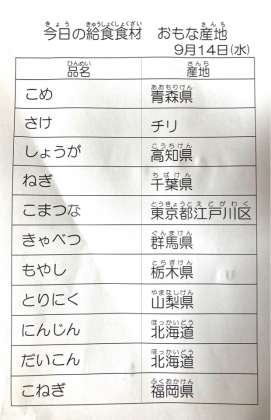 今日の給食食材 おもな産地
9月14日(水)
品名 産地
こめ 青森県
さけ チリ
しょうが 高知県
ねぎ 千葉県
こまつな 東京都江戸川区
きゃべつ 群馬県
もやし 栃木県
とりにく 山梨県
にんじん 北海道
だいこん 北海道
こねぎ 福岡県